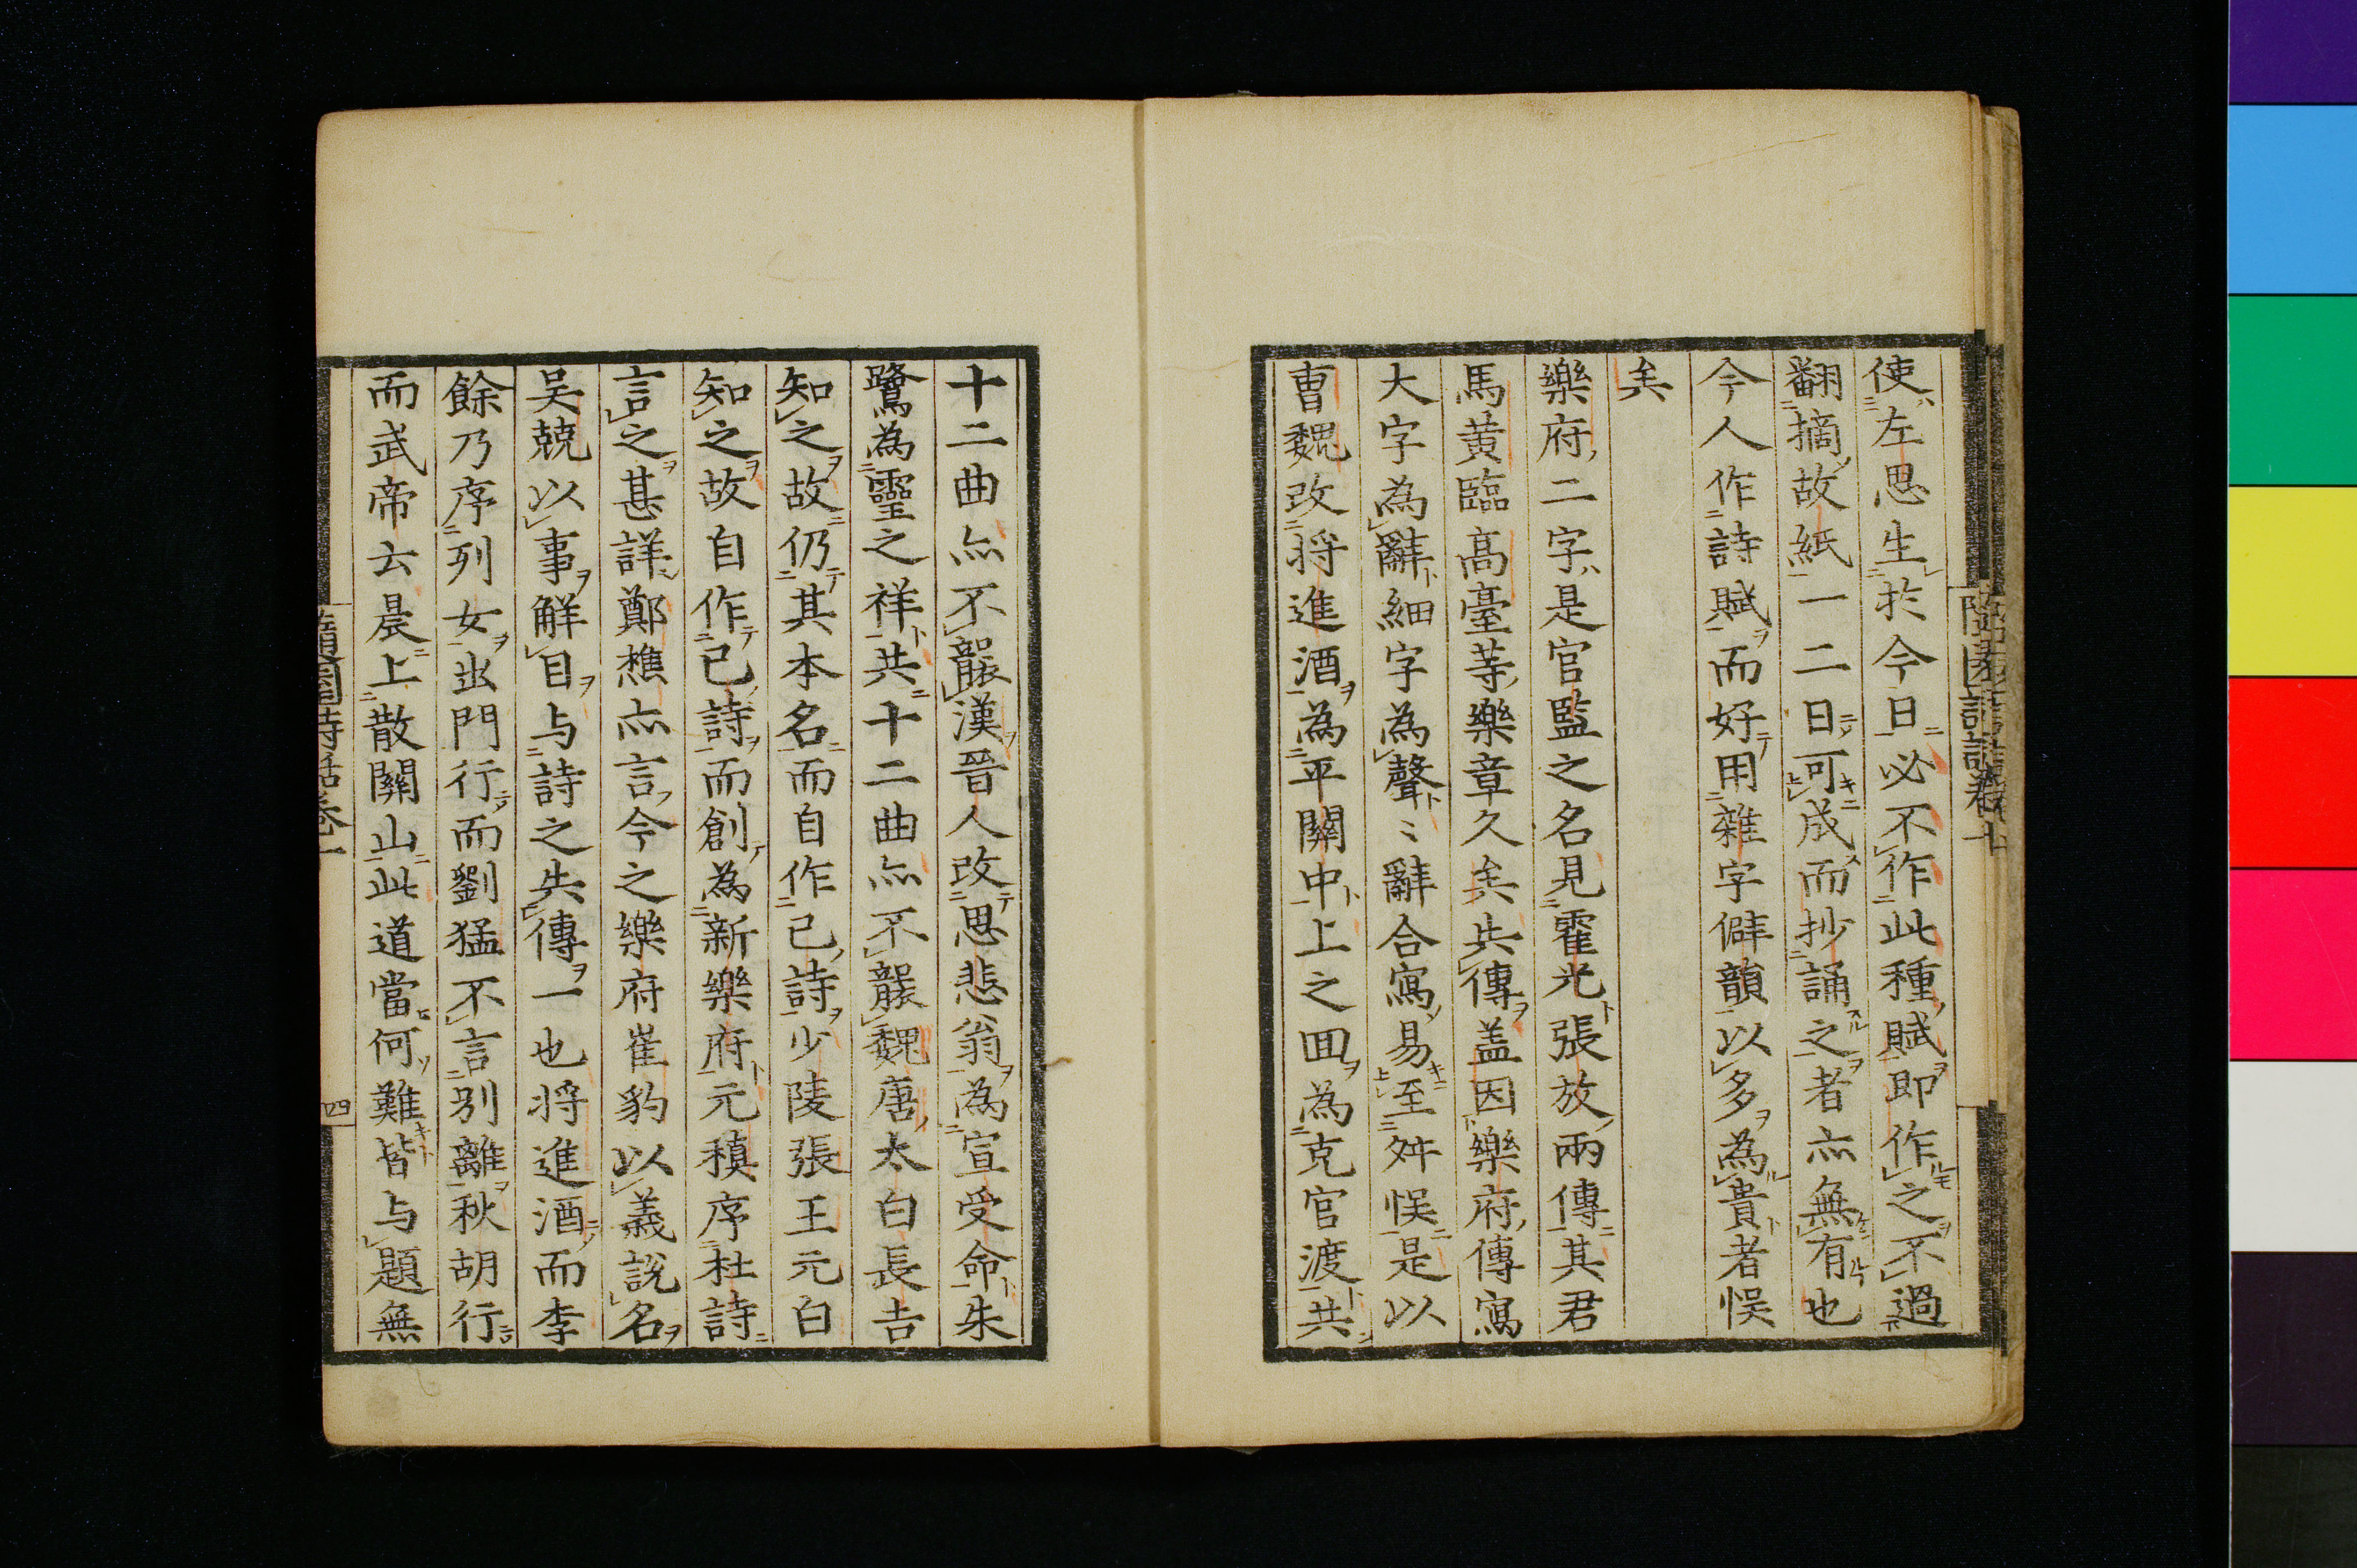 使左思生於今日必不作此種賦即作之不過
翻摘故紙一二日可成而抄誦之者亦無有也
今人作詩賦而好用雜字僻韻以多為貴者悮
矣
樂府二字是官監之名見霍光張放兩傳其君
馬黄臨髙臺䓁樂章久矣失傳盖因樂府傳寫
大字為辭細字為聲〻辭合寫易至舛悮是以
曺魏改将進酒為平關中上之囬為克官渡共
十二曲亦不襲漢晉人改思悲翁為宣受命朱
鷺為靈之祥共十二曲亦不襲魏唐太白長吉
知之故仍其本名而自作己詩少陵張王元白
知之故自作己詩而創為新樂府元稹序杜詩
言之甚詳鄭樵亦言今之樂府崔豹以義說名
吴兢以事觧目与詩之失傳一也将進酒而李
餘乃序列女出門行而劉猛不言别離秋胡行
而武帝云晨上散關山此道當何難皆与題無
隨園詩話卷一
四